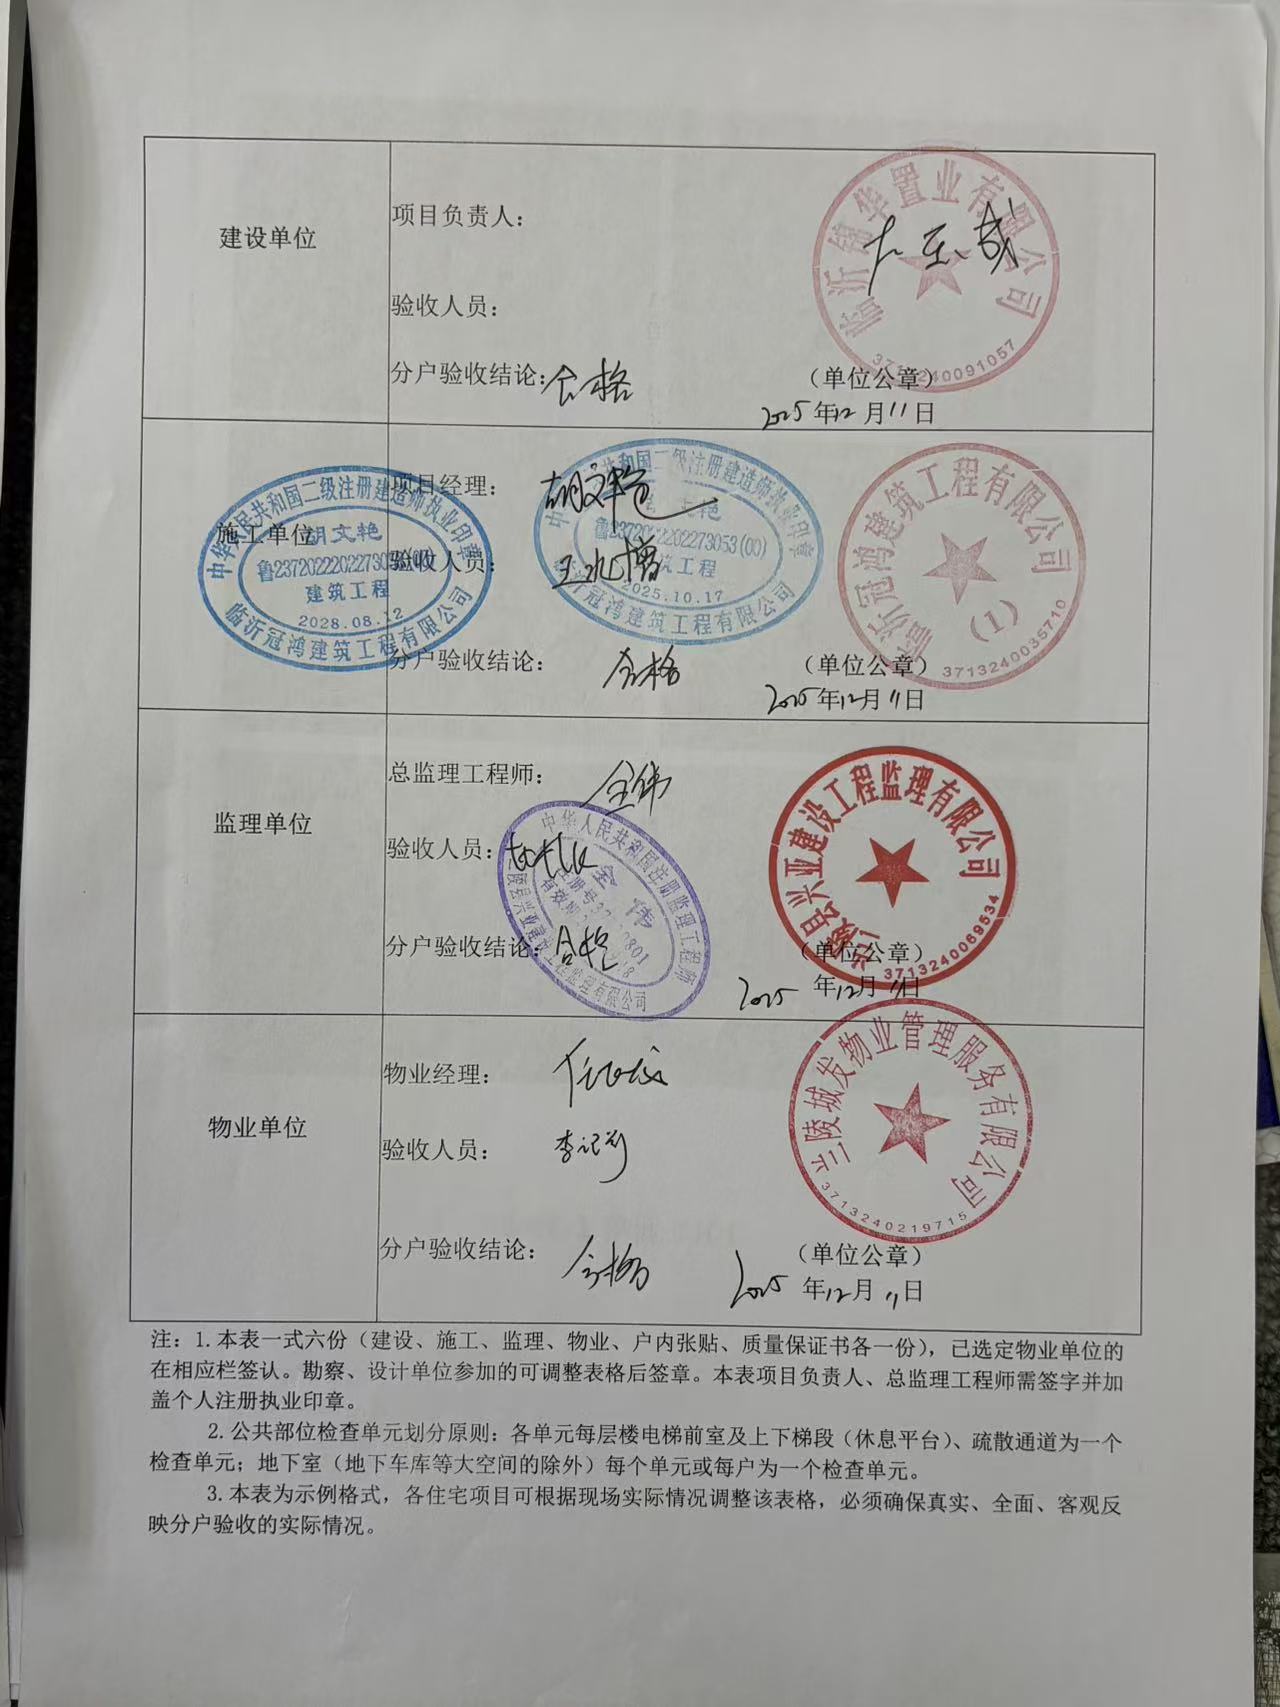 临沂锦华置业有限公司
建设单位
项目负责人：
验收人员：
3713240091057
分户验收结论：合格
（单位公章）
2025年12月11日
中华人民共和国二级注册建造师执业印章
胡文艳
鲁2372022202273053(00)
建筑工程
2028.08.12
临沂冠鸿建筑工程有限公司
施工单位
项目经理：胡文艳
中华人民共和国二级注册建造师执业印章
鲁2372022202273053(00)
建筑工程
2025.10.17
临沂冠鸿建筑工程有限公司
验收人员：
临沂冠鸿建筑工程有限公司
(1)
3713240035710
分户验收结论：合格
（单位公章）
2025年12月11日
监理单位
总监理工程师：全伟
兰陵县兴亚建设工程监理有限公司
3713240069534
验收人员：
中华人民共和国注册监理工程师
全伟
兰陵县兴亚建设工程监理有限公司
分户验收结论：合格
（单位公章）
2025年12月11日
物业单位
物业经理：
兰陵城发物业管理服务有限公司
3713240219715
验收人员：
分户验收结论：合格
（单位公章）
2025年12月11日
注：1.本表一式六份（建设、施工、监理、物业、户内张贴、质量保证书各一份），已选定物业单位的
在相应栏签认。勘察、设计单位参加的可调整表格后签章。本表项目负责人、总监理工程师需签字并加
盖个人注册执业印章。
2.公共部位检查单元划分原则：各单元每层楼电梯前室及上下梯段（休息平台）、疏散通道为一个
检查单元；地下室（地下车库等大空间的除外）每个单元或每户为一个检查单元。
3.本表为示例格式，各住宅项目可根据现场实际情况调整该表格，必须确保真实、全面、客观反
映分户验收的实际情况。